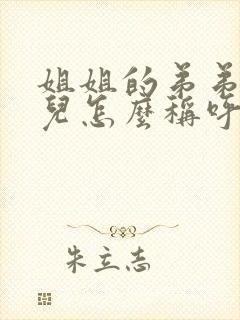 姐姐的弟弟
兒怎麼稱呼
朱立志